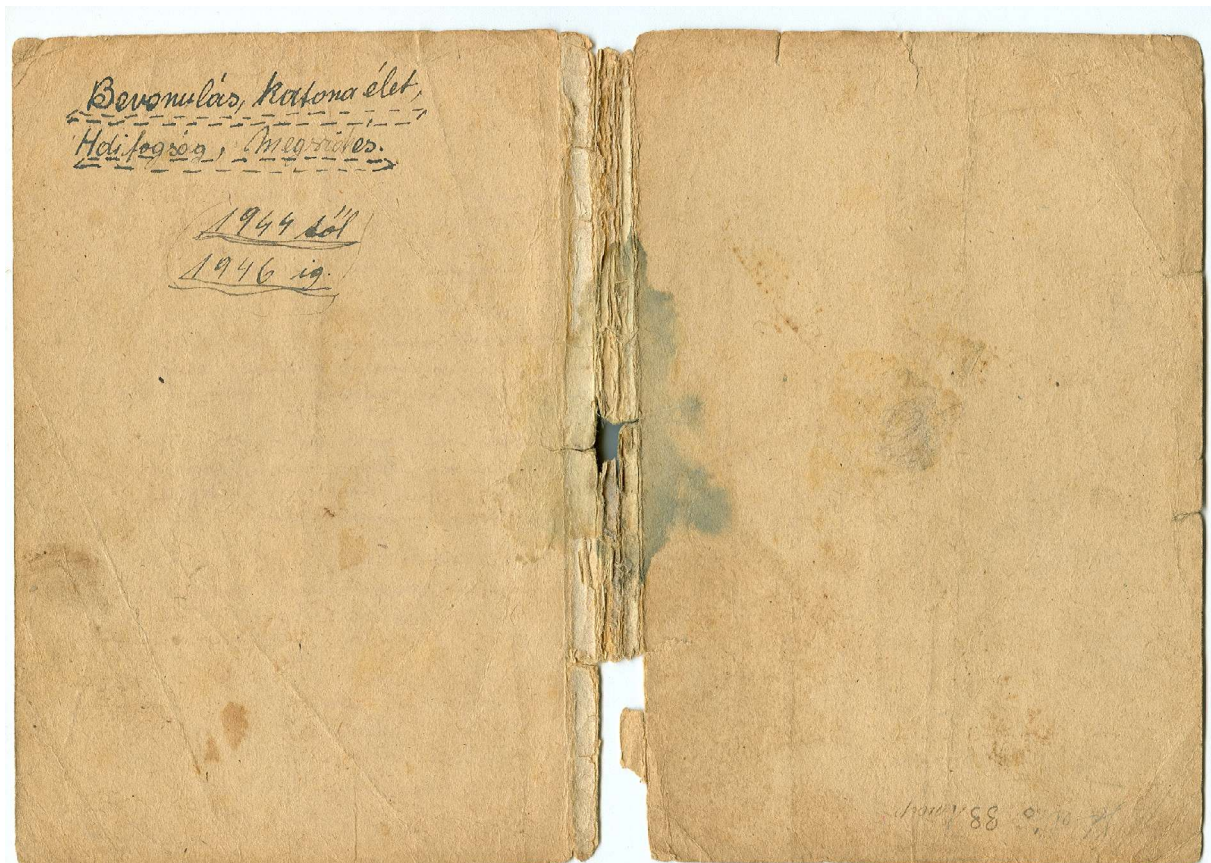 Bevonulás, katona élet,
Hdifogság,
1944 től
1946 ig.